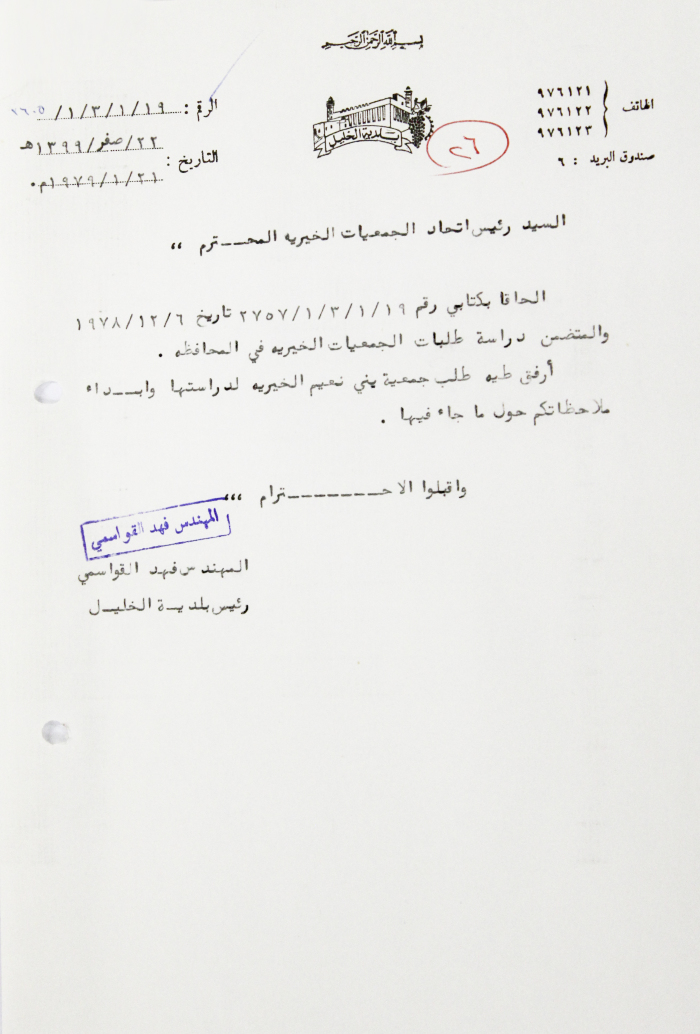 بسم الله الرحمن الرحيم
الهاتف ٩٧٦١٢١
٩٧٦١٢٢
٩٧٦١٢٣
صندوق البريد : ٦
بلدية الخليل
٢٦
الرقم : ١٩/١/٣/١/
٢٢/صفر/١٣٩٩هـ
التاريخ :
١٩٧٩/١/٢١م.
السيد رئيس اتحاد الجمعيات الخيريه المحـــترم ،،
الحاقا بكتابي رقم ٢٧٥٧/١/٣/١/١٩ تاريخ ١٩٧٨/١٢/٦
والمتضمن دراسة طلبات الجمعيات الخيريه في المحافظه .
أرفق طيه طلب جمعية بني نعيم الخيريه لدراستها وابـــداء
ملاحظاتكم حول ما جاء فيها .
واقبلوا الاحـــــــترام ،،،
المهندس فهد القواسمي
المهندس فهد القواسمي
رئيس بلديــة الخليــل